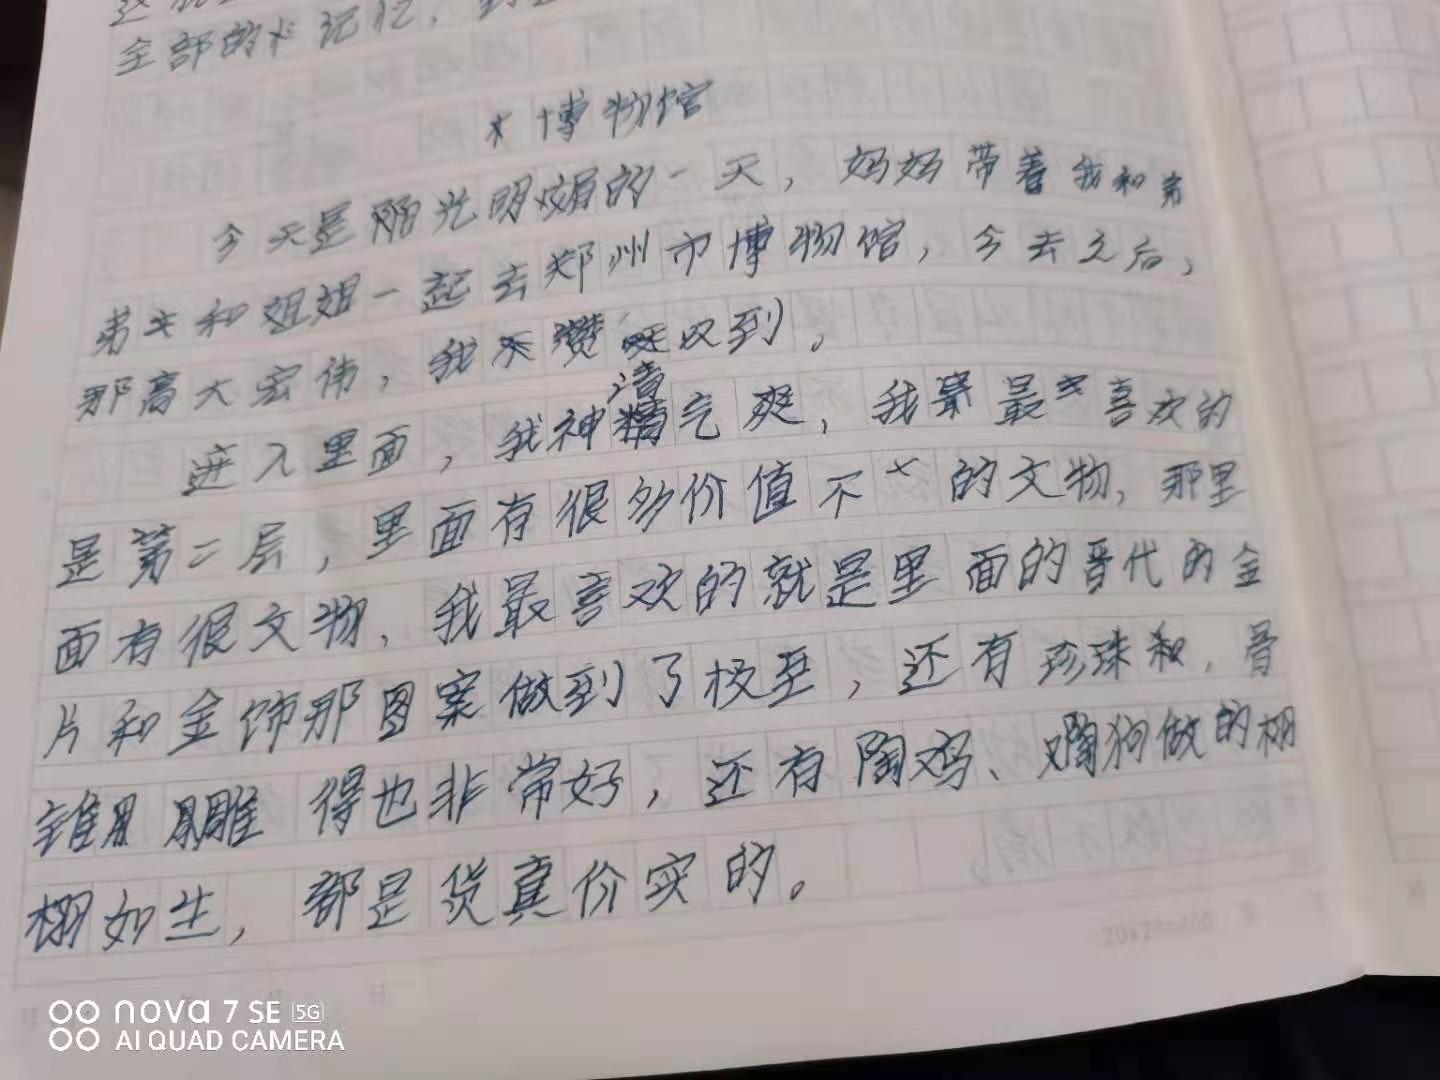 全部的记忆,
博物馆
今天是阳光明媚的一天，妈妈带着我和弟
弟和姐姐一起去郑州市博物馆，今去之后，
那高大宏伟，我赞叹到。
进入里面，我神清气爽，我最喜欢的
是第二层，里面有很多价值不 的文物，那里
面有很文物，我最喜欢的就是里面的晋代的金
片和金饰那图案做到了极至，还有珍珠和，骨
雕得也非常好，还有陶鸡、陶狗做的栩
栩如生，都是货真价实的。
20×20=400
nova 7 SE 5G
AI QUAD CAMERA